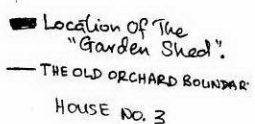 Location Of The
"Garden Shed".
THE OLD ORCHARD BOUNDAR
HOUSE NO. 3